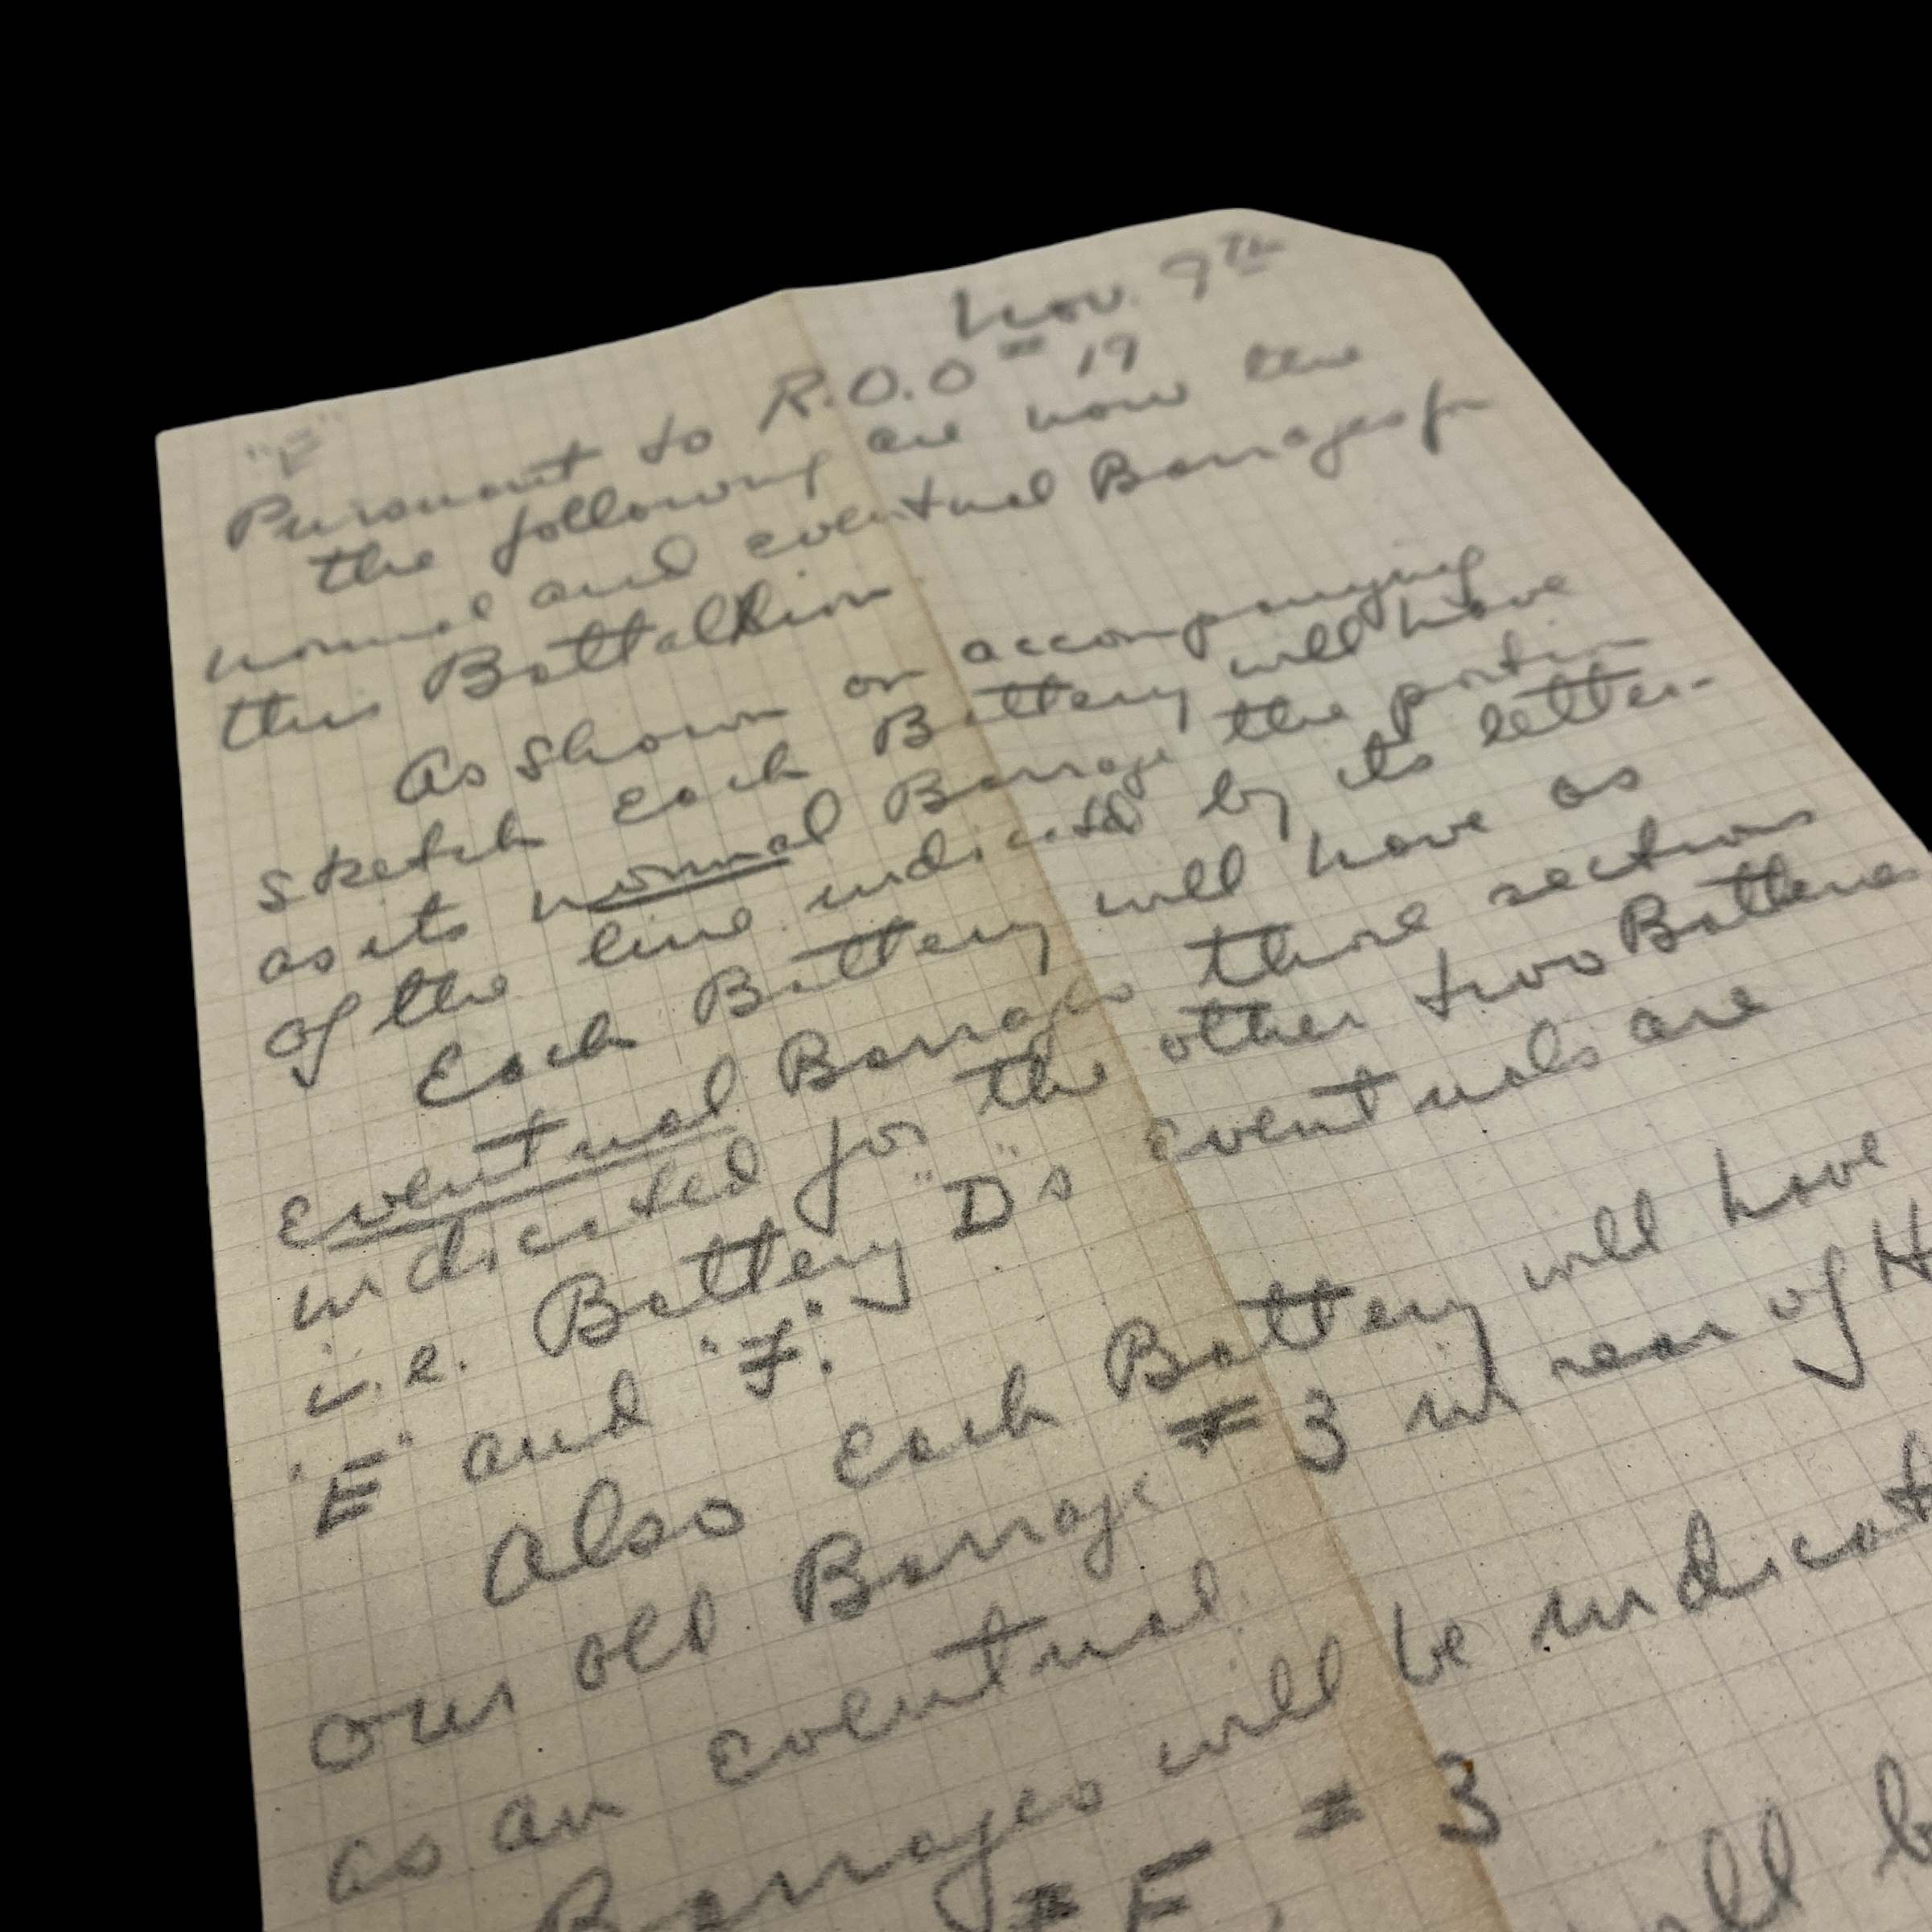 Nov. 9th
"E"
Pursuant to R.O.O # 19
the following are now the
normal and eventual Barrages for
this Battallion
As shown on accompanying
sketch each Battery will have
as its normal Barrage the portion
of the line indicated by its letter.
Each Battery will have as
eventual Barrages those sections
indicated for the other two Batteries
i.e. Battery "D"s eventuals are
"E" and "F".
Also each Battery will have
our old Barrage # 3 in rear of H
as an eventual.
Barrages will be indicat
# 3
will b